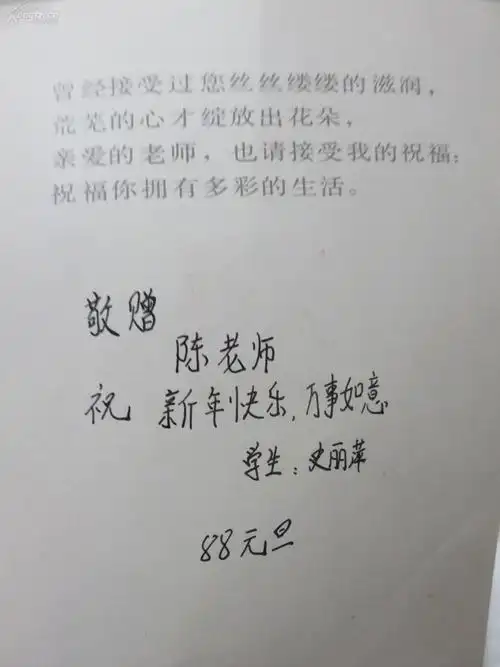 曾经接受过您丝丝缕缕的滋润，
荒芜的心才绽放出花朵，
亲爱的老师，也请接受我的祝福：
祝福你拥有多彩的生活。
敬赠
陈老师
祝 新年快乐，万事如意
学生：史丽萍
88元旦